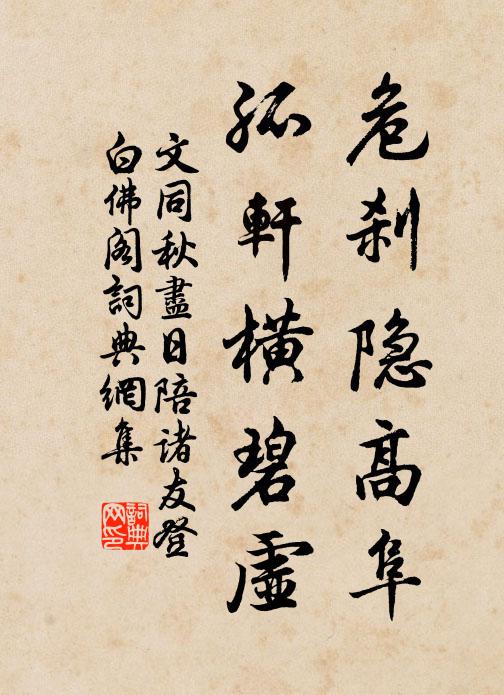 危刹隐高阜
孤軒橫碧虛
文同秋盡日陪諸友登
白佛阁詞典網集
詞典网印